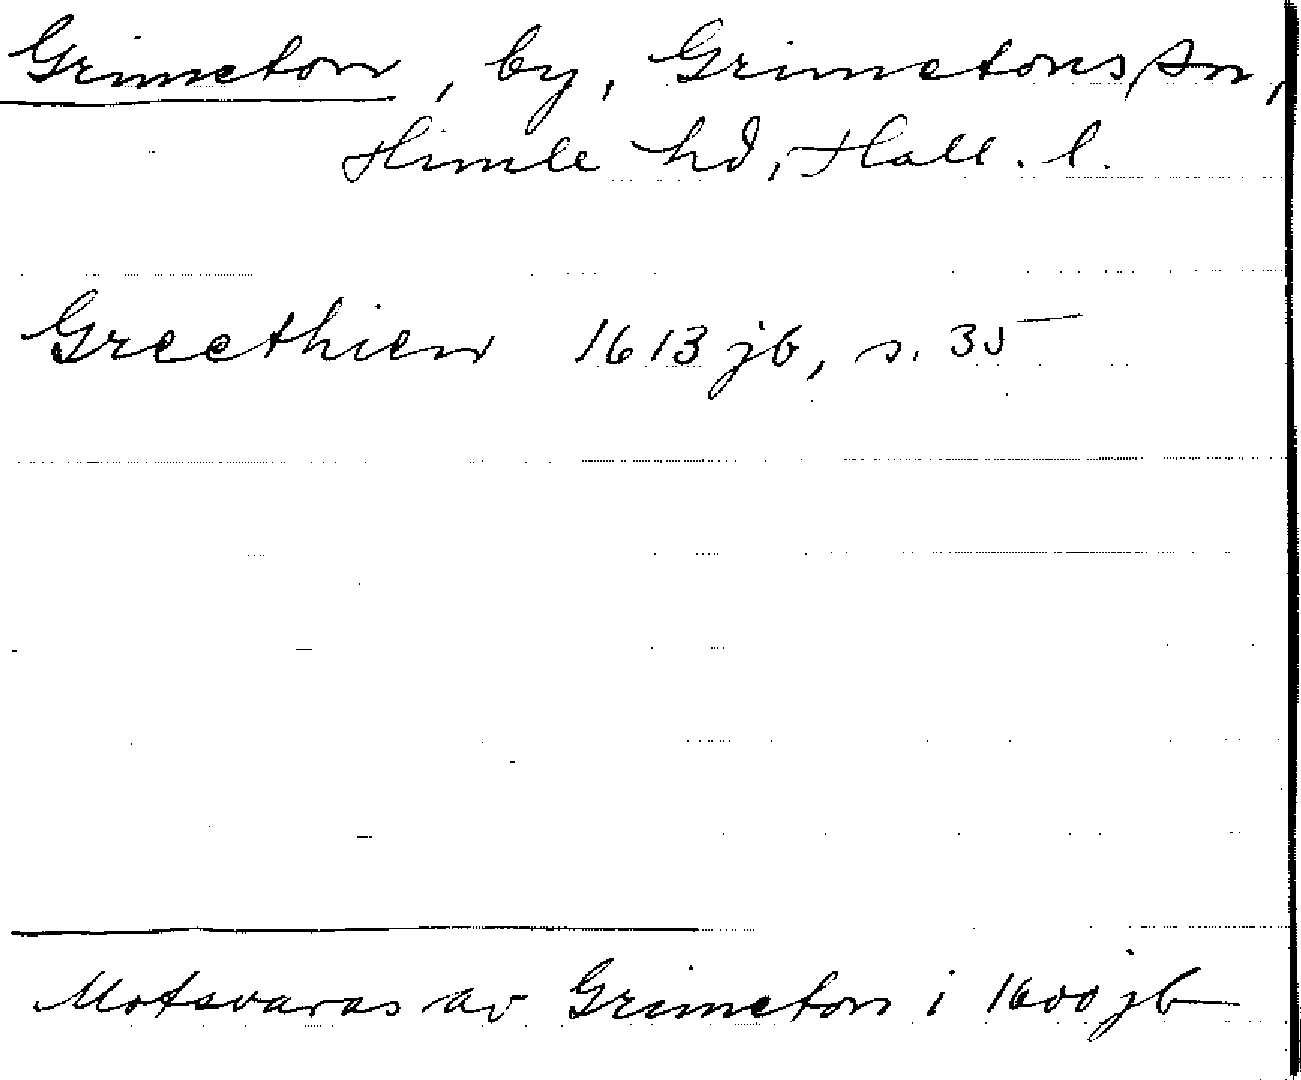 Grimeton, by, Grimetons sn,
Himle hd, Hall. l.
Greethien 1613 jb, s. 35
Motsvaras av Grimeton i 1600 jb